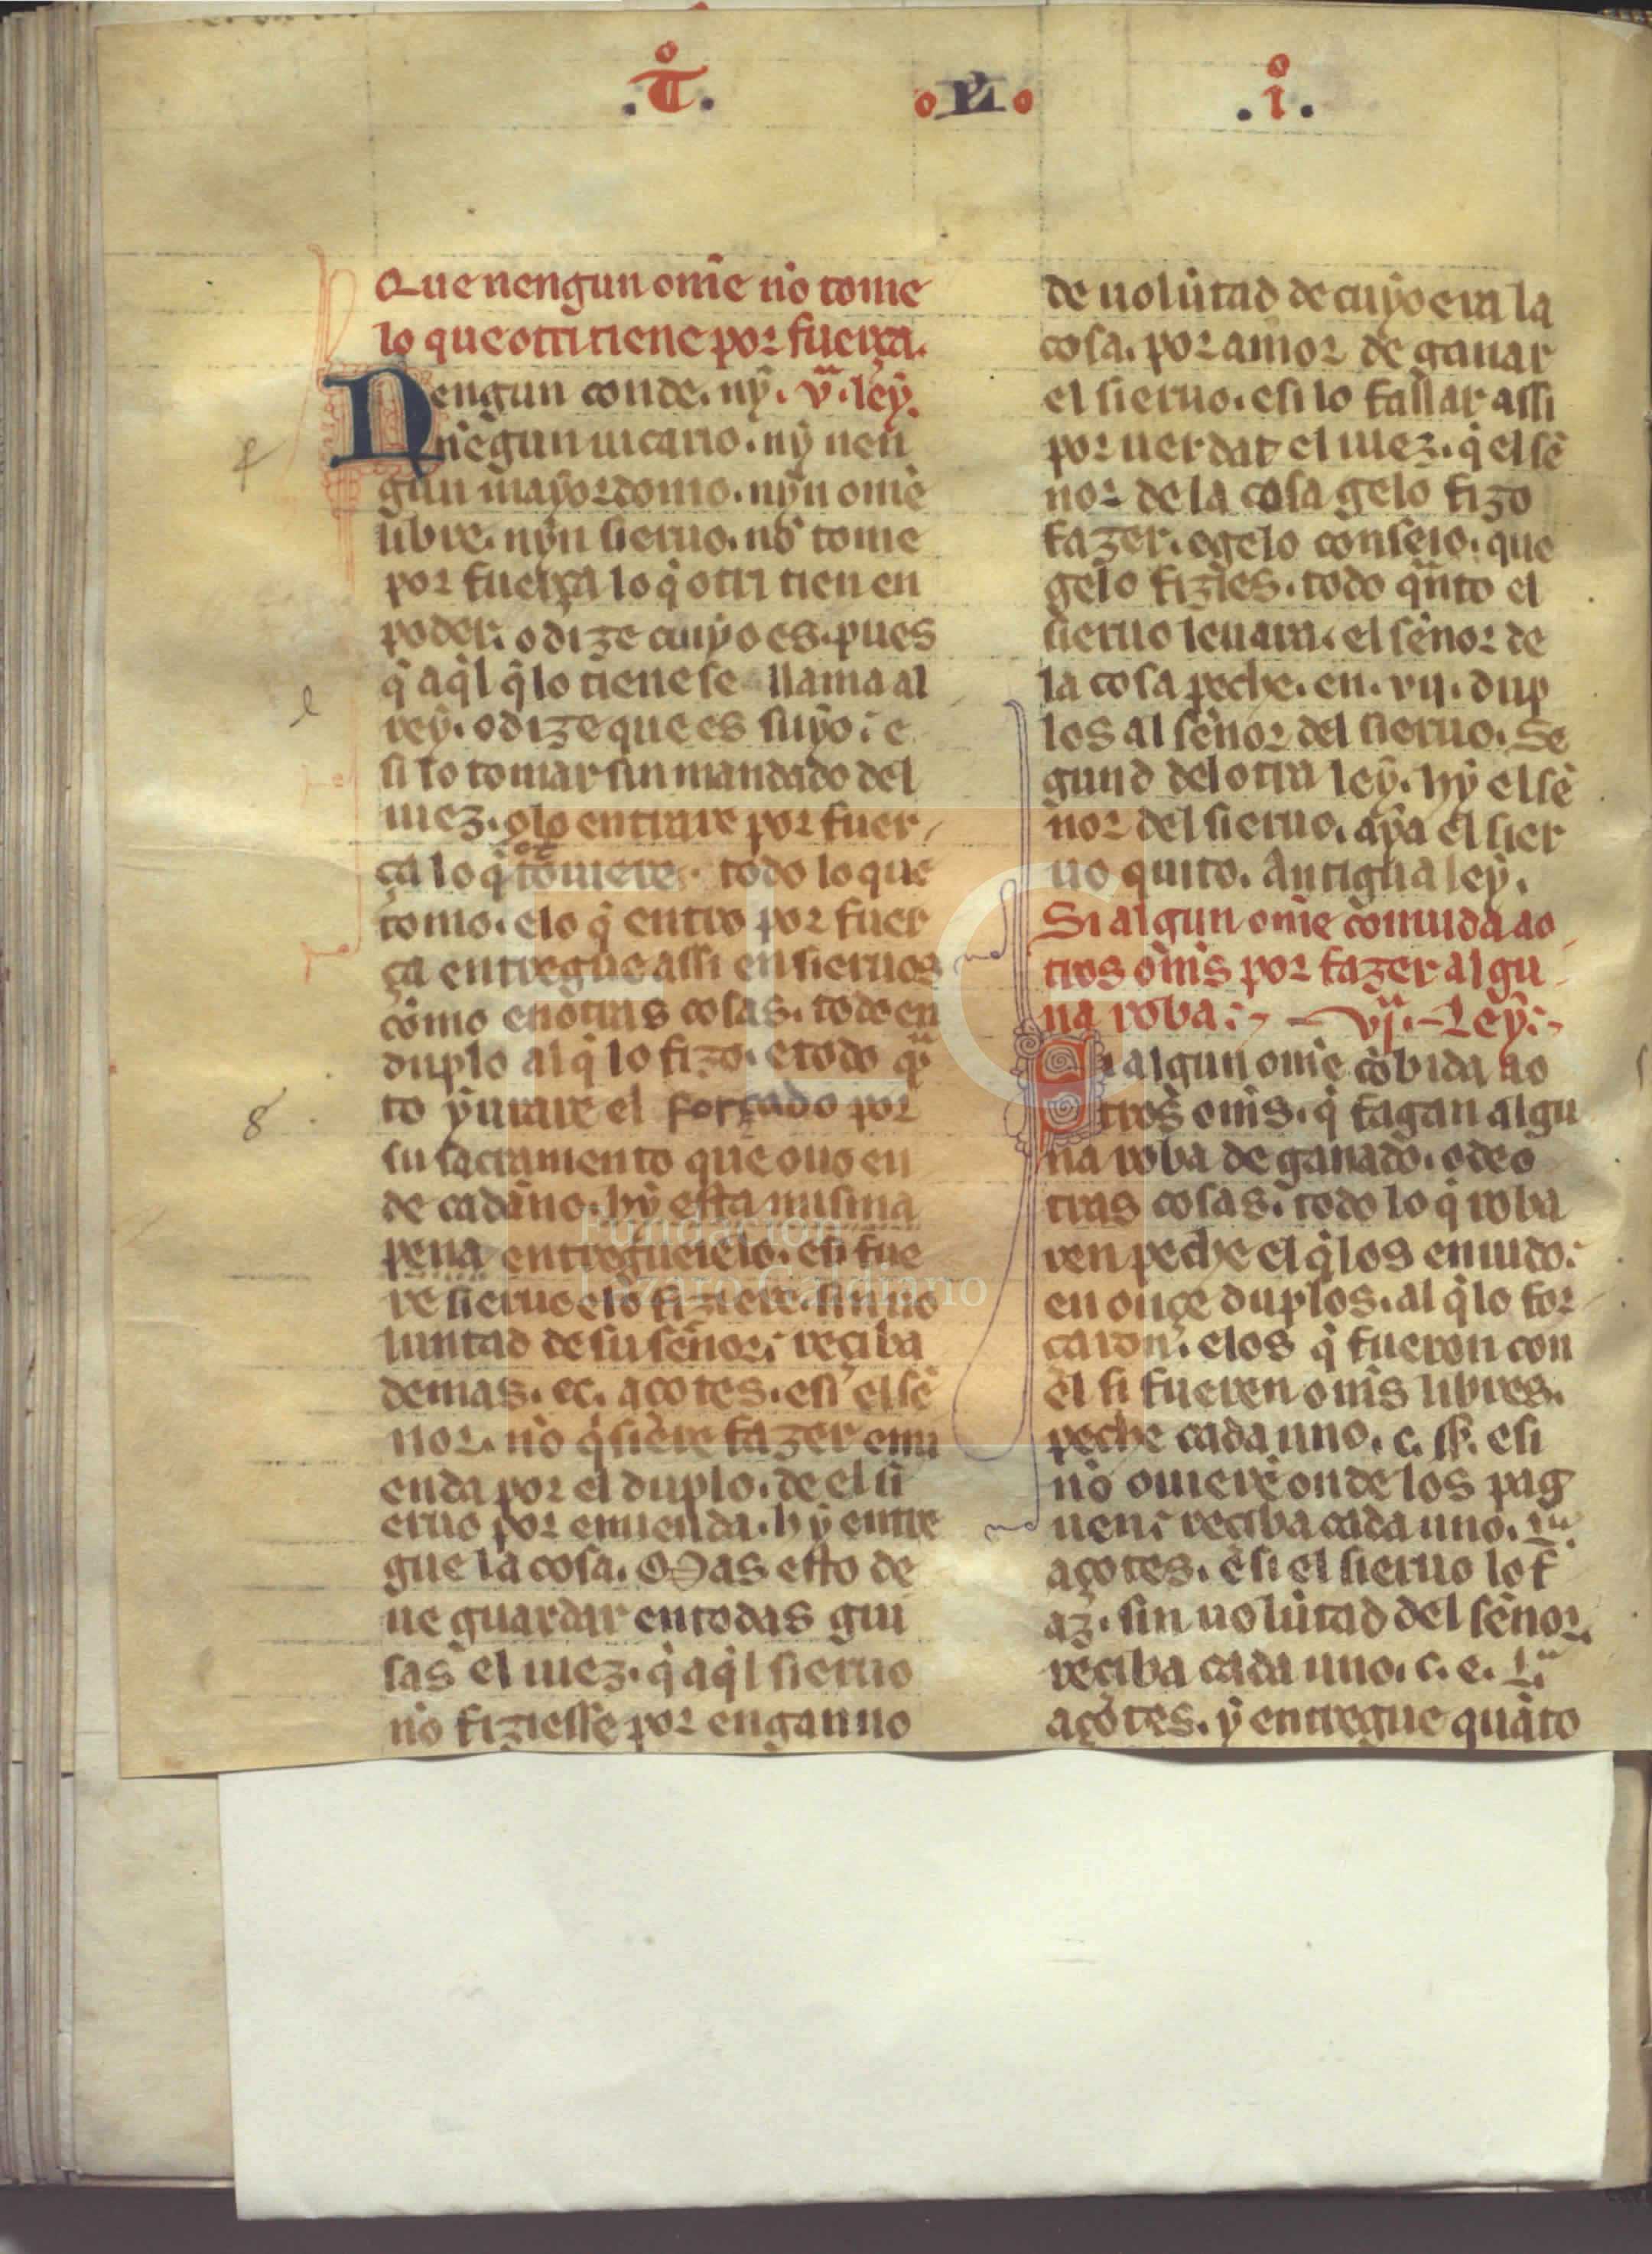 .T. .VI. .i.
Que nengun om̃e nõ tome
lo que otri tiene por fuerça.
Nengun conde. nỹ. v.ª leỹ.
nĩegun uicario. nỹ nen
gun mayordomo. nỹn om̃e
libre. nỹn sieruo. nõ tome
por fuerça lo q̃ otri tien en
poder. o dize cuyo es. pues
q̃ aq̃l q̃ lo tiene se llama al
reỹ. o dize que es suyo: e
si lo tomar sin mandado del
iuez. o lo entrare por fuer
ça lo q̃ touiere. todo lo que
tomo. e lo q̃ entro por fuer
ça entregue assi en sieruos
como en otras cosas. todo en
duplo al q̃ lo fizo. e todo qª
to ỹurare el forçado por
su sacramento que ouo en
de cada ãno. hỹ esta misma
pena entreguegelo. e si fue
re sieruo e lo fiziere sin uo
luntad de su sẽnor: reçiba
demas. cc. açotes. e si el sẽ
nor. nõ q̃siere fazer emi
enda por el duplo. de el si
eruo por emienda. hỹ entre
gue la cosa. Mas esto de
ue guardar en todas gui
sas el iuez. q̃ aq̃l sieruo
nõ fiziesse por enganno
de uolũtad de cuyo era la
cosa. por amor de gãnar
el sieruo. e si lo fallar assi
por uerdat el iuez. q̃ el sẽ
nor de la cosa gelo fizo
fazer. o gelo conseio. que
gelo fizies. todo qªnto el
sieruo leuara. el sẽnor de
la cosa peche. en. vij. dup
los al sẽnor del sieruo. Se
gund del otra leỹ. hỹ el sẽ
nor del sieruo. aỹa el sier
uo quito. Antigua leỹ.
Si algun om̃e comuida ao
tros om̃s por fazer algu
na roba: vjª. Leỹ:
Si algun om̃e cõbida ao
tros om̃s. q̃ fagan algu
na roba de ganado. o de o
tras cosas. todo lo q̃ roba
ren peche el q̃ los enuido.
en onçe duplos. al q̃ lo for
çaron. e los q̃ fueron con
el si fueren om̃s libres.
peche cada uno. c. ss. e si
nõ ouiere onde los pag
uen: reciba cada uno. Lª.
açotes. e si el sieruo lo f
az. sin uolũtad del sẽnor.
reciba cada uno. c. e. Lª
açotes. ỹ entregue quãto
FLG
Fundación
Lázaro Galdiano